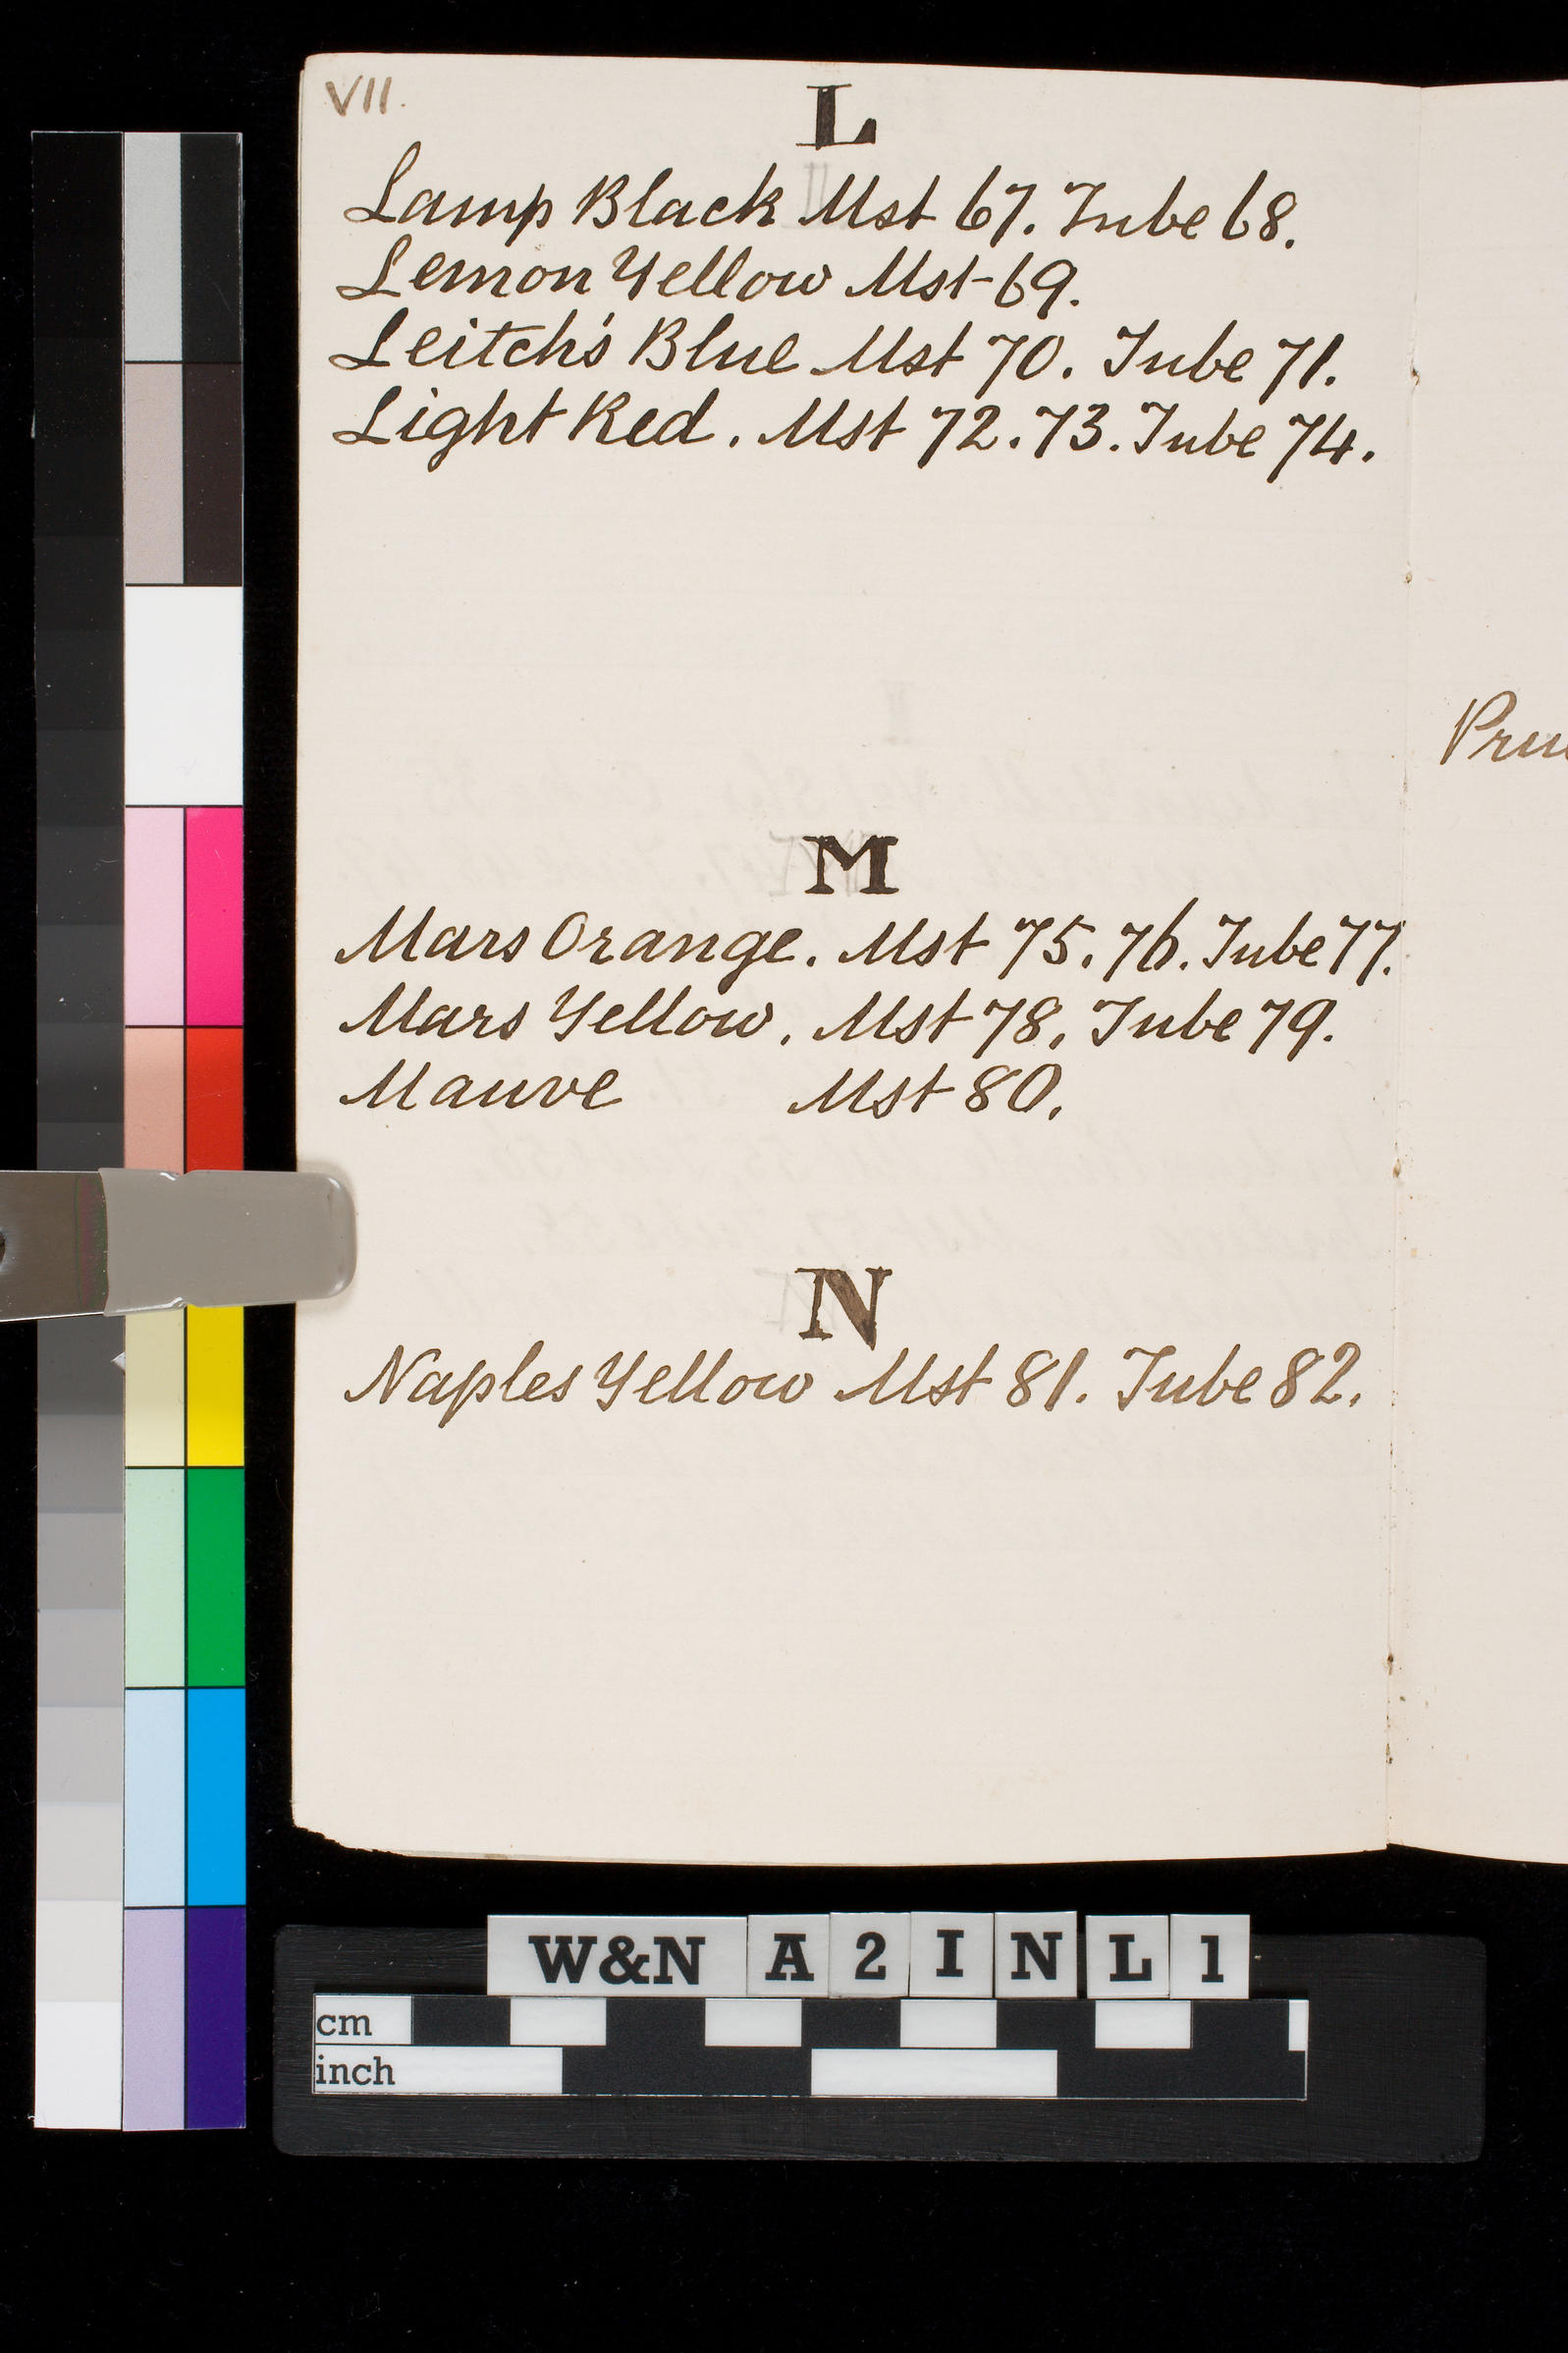 VII.
L
Lamp Black Mst 67. Tube 68.
Lemon Yellow Mst 69.
Leitch's Blue Mst 70. Tube 71.
Light Red. Mst 72. 73. Tube 74.
M
Mars Orange. Mst 75. 76. Tube 77.
Mars Yellow. Mst 78. Tube 79.
Mauve Mst 80.
N
Naples Yellow Mst 81. Tube 82.
W&N A 2 I N L 1
cm
inch